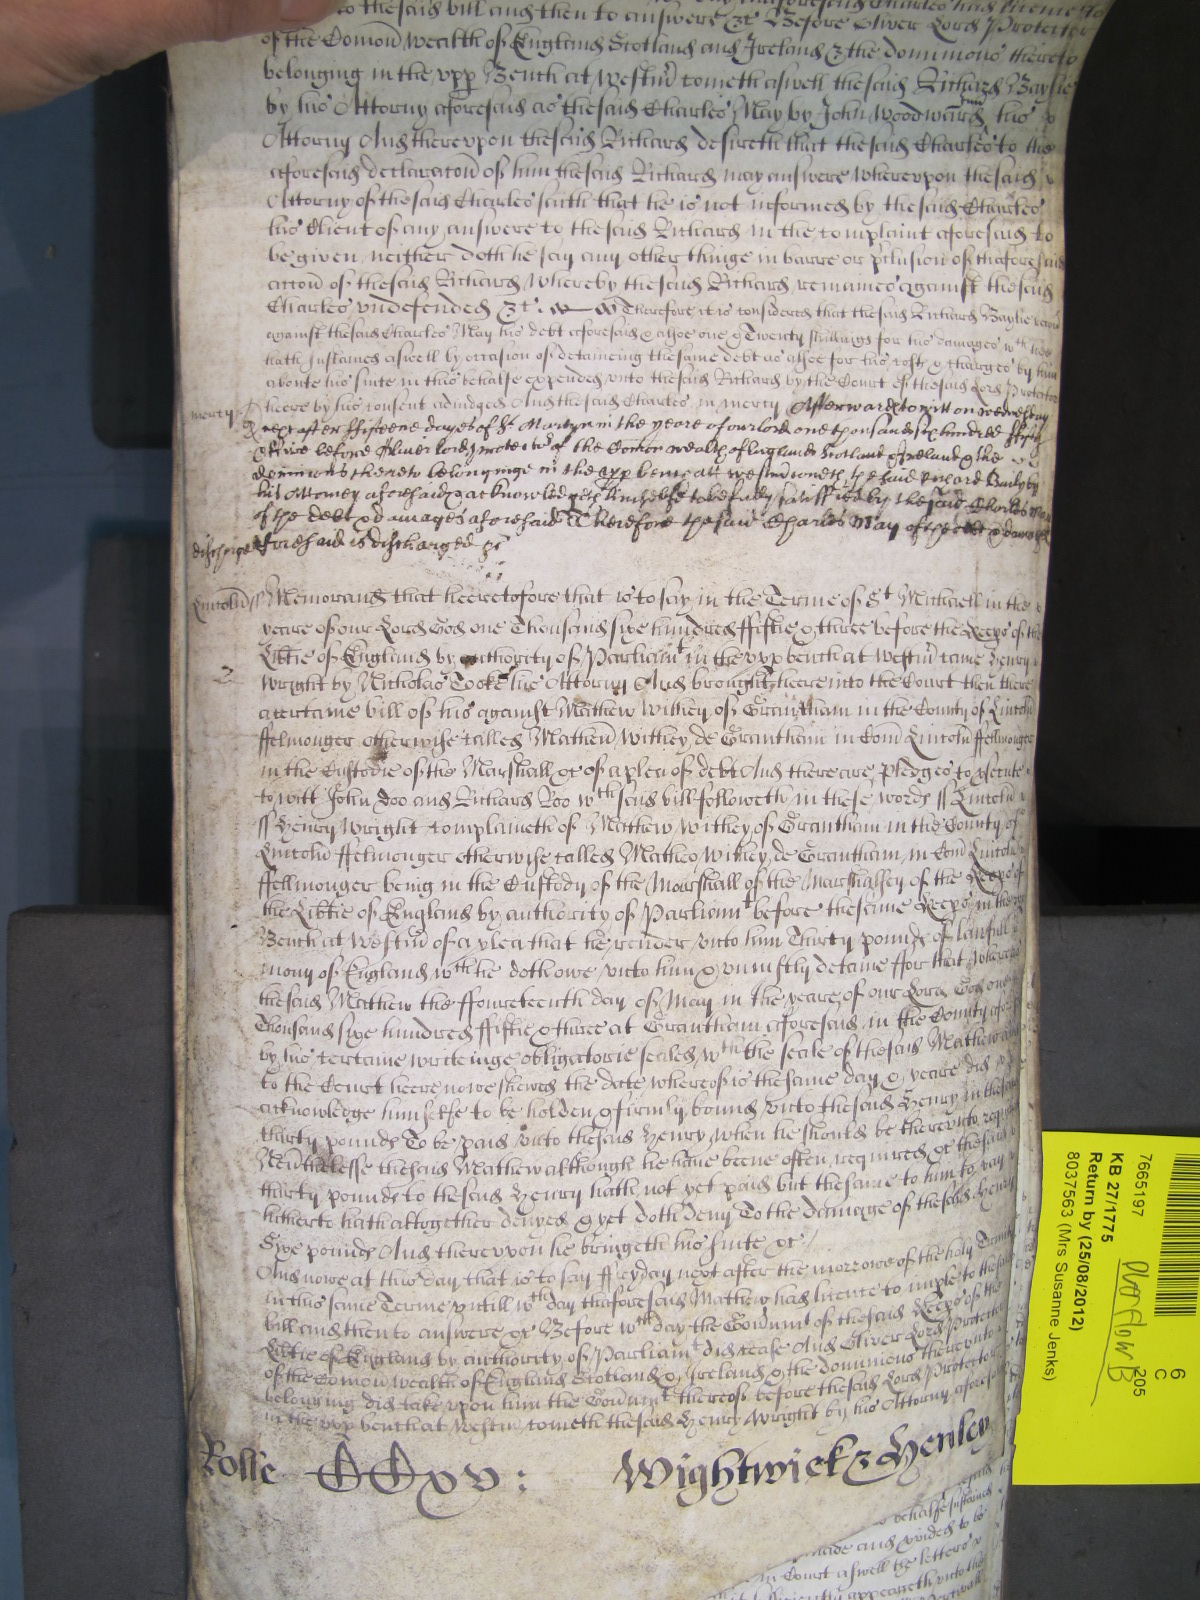 to the said bill and then to answere &c Before Oliver Lord Protector
of the Com̄on wealth of England Scotland and Ireland & the dominions thereto
belonging in the vpp Bench at Westm̄ cometh aswell the said Richard Baylie
by his Attorny aforesaid as the said Charles May by John Woodward his
Attorny And therevpon the said Richard desireth that the said Charles to the
aforesaid declaracon̄ of him the said Richard may answere wherevpon the said
Attorny of the said Charles saith that he is not informed by the said Charles
his Client of any answere to the said Richard in the complaint aforesaid to
be given neither doth he say any other thinge in barre or p̄clusion of thaforesaid
accon̄ of the said Richard whereby the said Richard remaines against the said
Charles vndefended &c. Therefore it is considered that the said Richard Baylie
against the said Charles May his debt aforesaid & alsoe one & Twenty shillings for his damages wch hee
hath sustained aswell by occasion of detaineing the same debt as alsoe for his costs & charges by him
aboute his suite in this behalfe expended vnto the said Richard by the Court of the said Lord Protector
mercy heere by his consent adiudged And the said Charles in mercy Afterwards to witt on wednesday
next after fifteene dayes of St Martyn in the yeare of our lord one thousand six hundred fifty
& five before Oliver lord protector of the Com̄on wealth of England Scotland & Ireland & the
dominions thereto belonginge in the vpp bench att westm̄ cometh the said Richard Bayly by
his Attorney aforesaid & acknowledgeth himselfe to be fully satisffied by the said Charles May
of the debt & damages aforesaid Therefore the said Charles May of the debt & damages
discharge aforesaid is discharged &c
Lincoln̄ ss Memorand that heeretofore that is to say in the Terme of St Michaell in the
yeare of our Lord God one Thousand sixe hundred ffiftie & three before the Keeps of the
Lib̄tie of England by authority of Parliamt in the vpp bench at Westm̄ came Henry
Wright by Nicholas Tooke his Attorny And brought heere into the Court then there
a certaine bill of his against Mathew Withey of Grantham in the County of Lincoln̄
ffelmonger otherwise called Mathew Withey de Grantham in Com̄ Lincoln̄ ffelmonger
in the Custodie of the Marshall &c of a plea of debt And there are pledges to p̄secute
to witt John Doo and Richard Roo wch said bill followeth in these words ss Lincoln̄
ss Henry Wright complaineth of Mathew Withey of Grantham in the County of
Lincoln̄ ffelmonger otherwise called Matheo Withey de Grantham in Com̄ Lincoln̄
ffellmonger being in the Custody of the Marshall of the Marshalsey of the Keeps of
the Lib̄tie of England by authority of Parliamt before the same Keeps in the vpp
Bench at Westm̄ of a plea that he render vnto him Thirty pounds of lawfull
mony of England wch he doth owe vnto him & vniustly detaine ffor that whereas
the said Mathew the ffourteenth day of May in the yeare of our Lord God one
Thousand sixe hundred ffiftie & three at Grantham aforesaid in the County afores
by his certaine writeinge obligatorie sealed wth the seale of the said Mathew and
to the Court heere nowe shewed the date whereof is the same day & yeare did
acknowledge himselfe to be holden & firmly bound vnto the said Henry in the said
thirty pounds To be paid vnto the said Henry when he should be therevnto
Neūthelesse the said Mathew although he have beene often required &c the said
thirty pounds to the said Henry hath not yet paid but the same to him to pay
hitherto hath altogether denyed & yet doth deny To the damage of the said Henry
Sixe pounds And therevpon he bringeth his suite &c /
And nowe at this day that is to say ffryday next after the morrowe of the holy Trinity
in this same Terme vntill wch day thaforesaid Mathew had licence to imple to the said
bill and then to answere &c Before wch day the Gov̄mt of the said Keeps of the
Lib̄tie of England by authority of Parliamt did cease And Oliver Lord Protector
of the Com̄on wealth of England Scotland & Ireland & the dominions therevnto
belonging did take vpon him the Gov̄mt thereof before the said Lord Protector
in the vpp bench at Westm̄ cometh the said Henry Wright by his Attorny aforesaid
Rolle CCxv: Wightwick & Henley
behalfe sustained
made and p̄vided to be
in Court aswell the letters
appeareth vnto the
7665197
KB 27/1775
Return by (25/08/2012)
8037563 (Mrs Susanne Jenks)
6
C
205